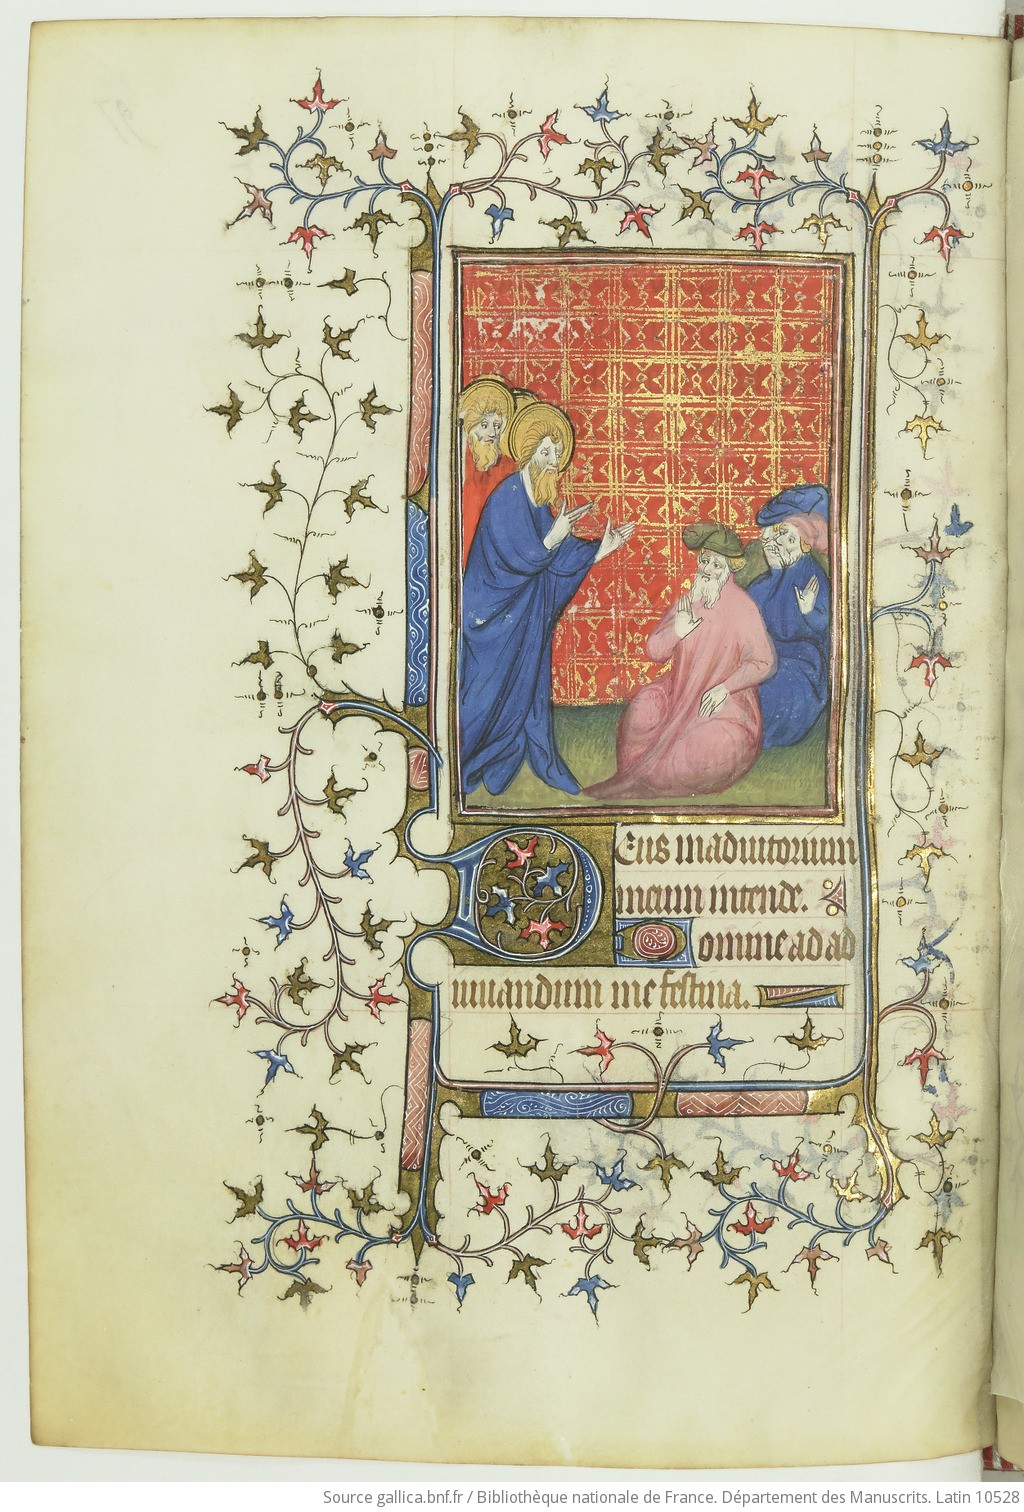 Eus in adiutorium
meum intende.
omine ad ad
iuuandum me festina.
Source gallica.bnf.fr / Bibliothèque nationale de France. Département des Manuscrits. Latin 10528